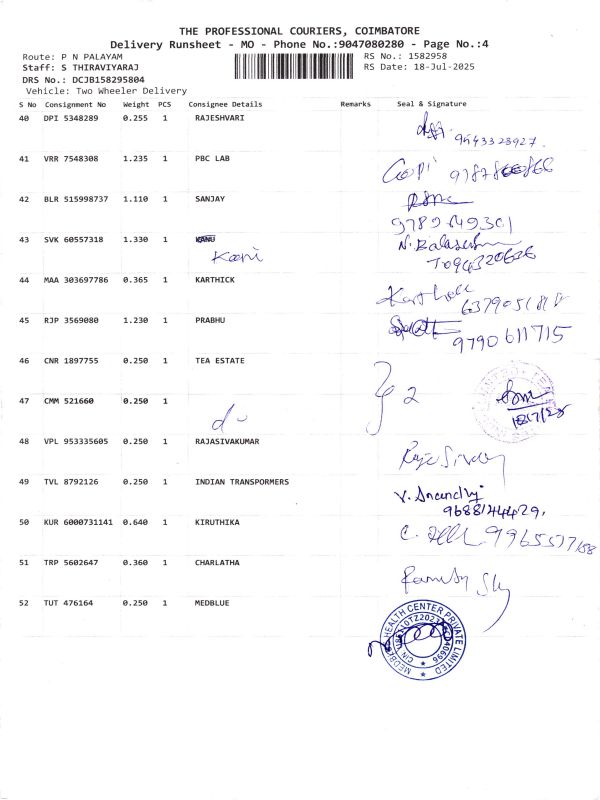 THE PROFESSIONAL COURIERS, COIMBATORE
Delivery Runsheet - MO - Phone No.:9047080280 - Page No.:4
Route: P N PALAYAM RS No.: 1582958
Staff: S THIRAVIYARAJ RS Date: 18-Jul-2025
DRS No.: DCJB158295804
Vehicle: Two Wheeler Delivery
S No Consignment No Weight PCS Consignee Details Remarks Seal & Signature
40 DPI 5348289 0.255 1 RAJESHVARI
9543328927.
41 VRR 7548308 1.235 1 PBC LAB
Gopi
42 BLR 515998737 1.110 1 SANJAY
43 SVK 60557318 1.330 1 KANU
Kani
44 MAA 303697786 0.365 1 KARTHICK
45 RJP 3569080 1.230 1 PRABHU
9790611715
46 CNR 1897755 0.250 1 TEA ESTATE
2
47 CMM 521660 0.250 1
48 VPL 953335605 0.250 1 RAJASIVAKUMAR
49 TVL 8792126 0.250 1 INDIAN TRANSPORMERS
V. Anandhi
9688144429.
50 KUR 6000731141 0.640 1 KIRUTHIKA
51 TRP 5602647 0.360 1 CHARLATHA
52 TUT 476164 0.250 1 MEDBLUE
HEALTH CENTER PRIVATE LIMITED